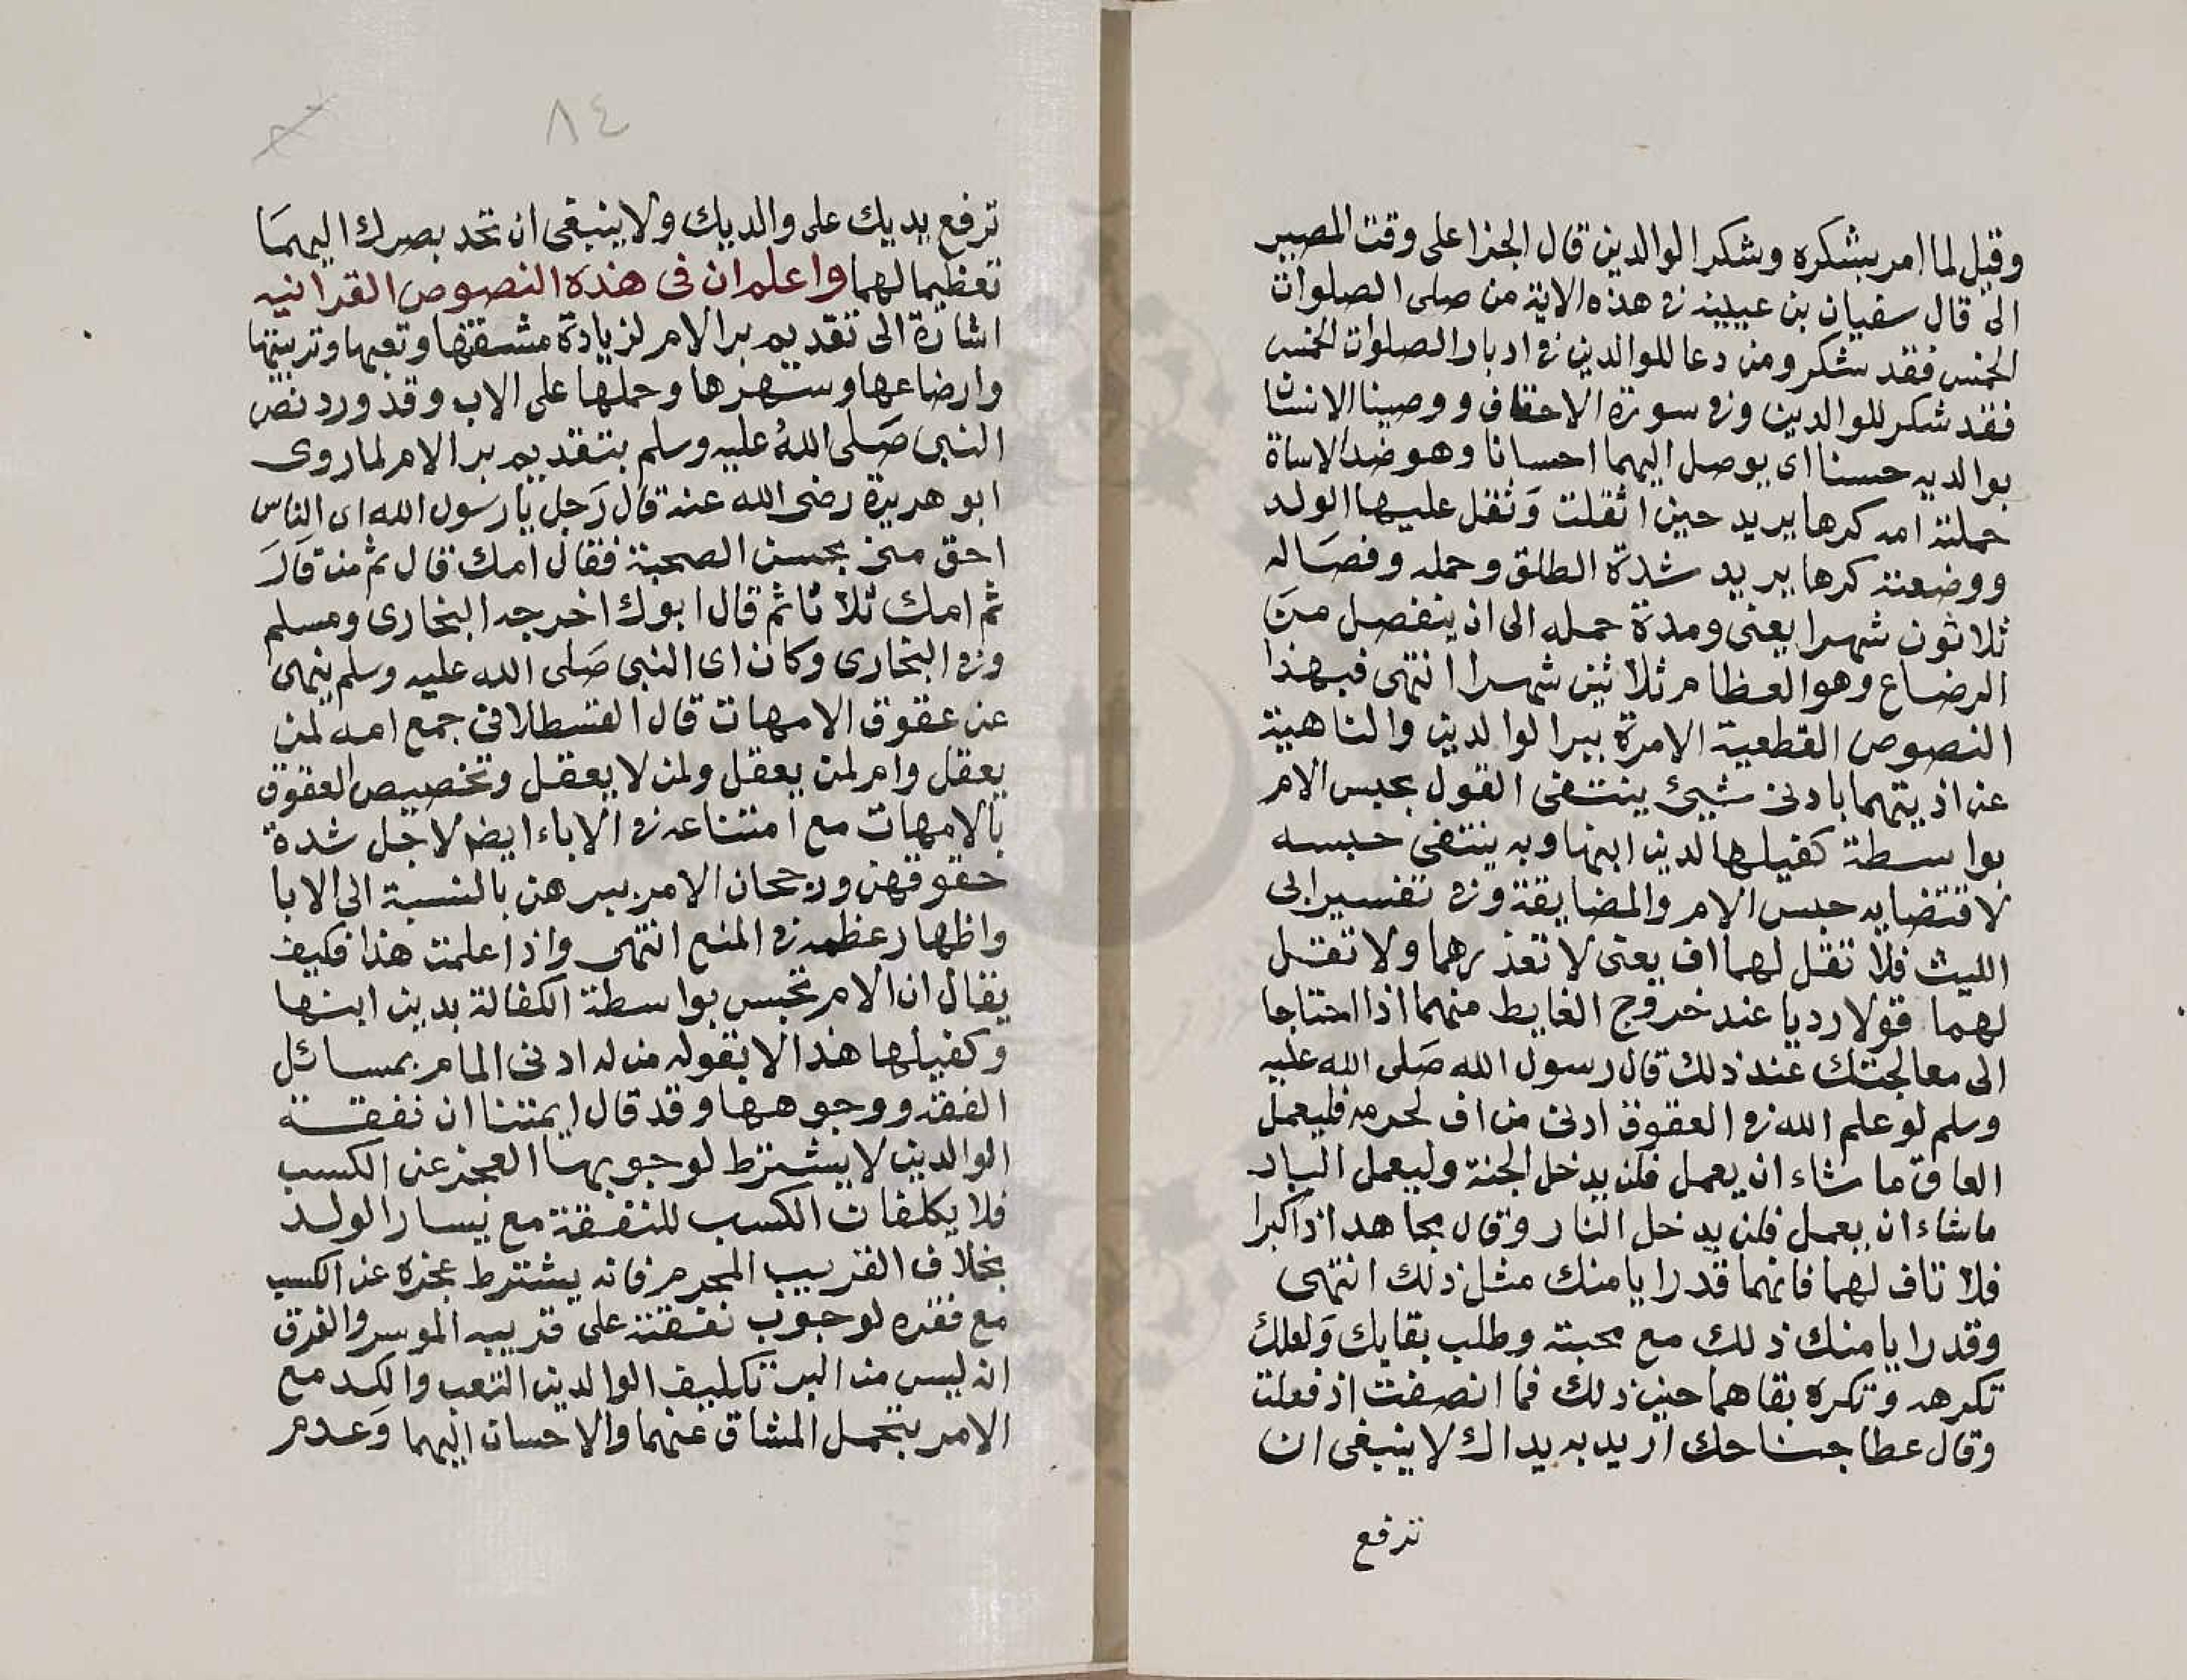 وقيل لما امر بشكره وشكر الوالدين قال الجزا على وقت المصير
الىّ قال سفيان بن عيينه في هذه الاية من صلى الصلوات
الخمس فقد شكر ومن دعا للوالدين في ادبار الصلوات الخمس
فقد شكر للوالدين وفي سورة الاحقاف ووصينا الانسان
بوالديه حسنا اى يوصل اليهما احسانا وهو ضد الاساة
حملته امه كرها يريد حين اثقلت وثقل عليها الولد
ووضعته كرها يريد شدة الطلق وحمله وفصاله
ثلاثون شهرا يعنى ومدة حمله الى ان ينفصل من
الرضاع وهو الفطام ثلاثين شهرا انتهى فبهذا
النصوص القطعية الامرة ببر الوالدين والناهية
عن اذيتهما بادنى شيئ ينتفى القول بحبس الام
بواسطة كفيلها لدين ابنها وبه ينتفى حبسه
لاقتضايه حبس الام والمضايقة وفي تفسير ابى
الليث فلا تقل لهما اف يعنى لا تقذرهما ولا تقل
لهما قولا رديا عند خروج الغايط منهما اذا احتاجا
الى معالجتك عند ذلك قال رسول الله صلى الله عليه
وسلم لو علم الله في العقوق ادنى من اف لحرمه فليعمل
العاق ما شاء ان يعمل فلن يدخل الجنة وليعمل البار
ماشاء ان يعمل فلن يدخل النار وقال مجاهد اذا كبرا
فلا تاف لهما فانهما قد رايا منك مثل ذلك انتهى
وقد رايا منك ذلك مع محبته وطلب بقايك ولعلك
تكرهه وتكره بقاهما حين ذلك فما انصفت اذ فعلت
وقال عطا جناحك اريد به يداك لا ينبغى ان
ترفع
٨٤
ترفع يديك على والديك ولا ينبغى ان تحد بصرك اليهما
تعظيما لهما واعلم ان فى هذه النصوص القرانيه
اشارة الى تقديم بر الام لزيادة مشقتها وتعبها وتربيتها
وارضاعها وسهرها وحملها على الاب وقد ورد نص
النبى صلى الله عليه وسلم بتقديم بر الام لما روى
ابو هريرة رضى الله عنه قال رجل يا رسول الله اى الناس
احق منى بحسن الصحبة فقال امك قال ثم من قال
ثم امك ثلاثا ثم قال ابوك اخرجه البخارى ومسلم
وفي البخارى وكان اى النبى صلى الله عليه وسلم ينهى
عن عقوق الامهات قال القسطلانى جمع امه لمن
يعقل وام لمن يعقل ولمن لا يعقل وتخصيص العقوق
بالامهات مع امتناعه في الاباء ايضا لاجل شدة
حقوقهن ورجحان الامر ببرهن بالنسبة الى الابا
واظهار عظمه في المنع انتهى واذا علمت هذا فكيف
يقال ان الام تحبس بواسطة الكفالة بدين ابنها
وكفيلها هذا لا يقوله من له ادنى المام بمسائل
الفقه ووجوهها وقد قال ايمتنا ان نفقة
الوالدين لا يشترط لوجوبها العجز عن الكسب
فلا يكلفان الكسب للنفقة مع يسار الولد
بخلاف القريب المحرم فانه يشترط عجزه عن الكسب
مع فقره لوجوب نفقته على قريبه الموسر والفرق
انه ليس من البر تكليف الوالدين التعب والكد مع
الامر بتحمل المشاق عنهما والاحسان اليهما وعدم